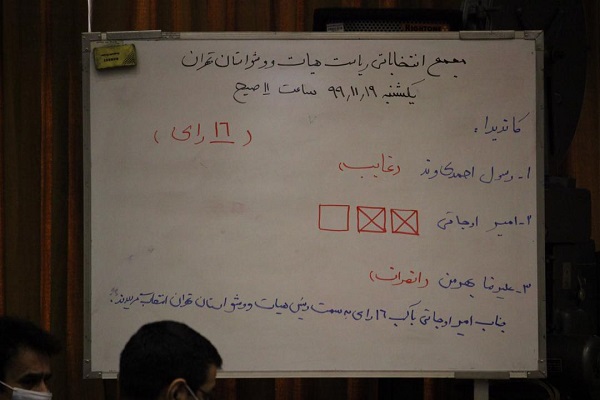 مجمع انتخاباتی ریاست هیات وو شو استان تهران
یکشنبه ۹۹٫۱۱٫۱۹ ساعت ۱۱ صبح
کاندیدا:
(۱۶ رای)
۱- رسول احمدی وند (غایب)
۲- امیر اوجاقی
۳- علیرضا بهرومن (انصراف)
جناب امیر اوجاقی با کسب ۱۶ رای به سمت رئیس هیات وو شو استان تهران انتخاب گردیدند.